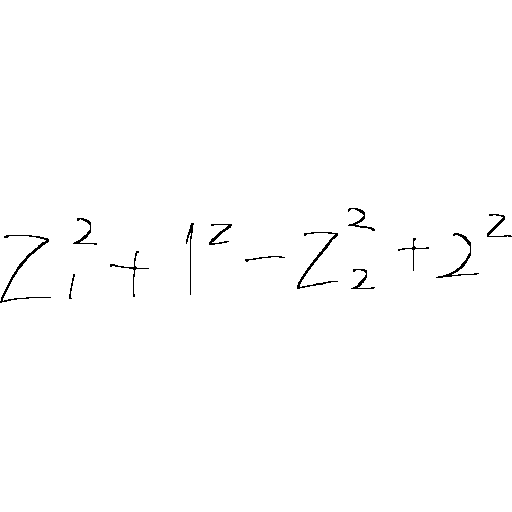 Z₁² + 1² - Z₂² + 2²